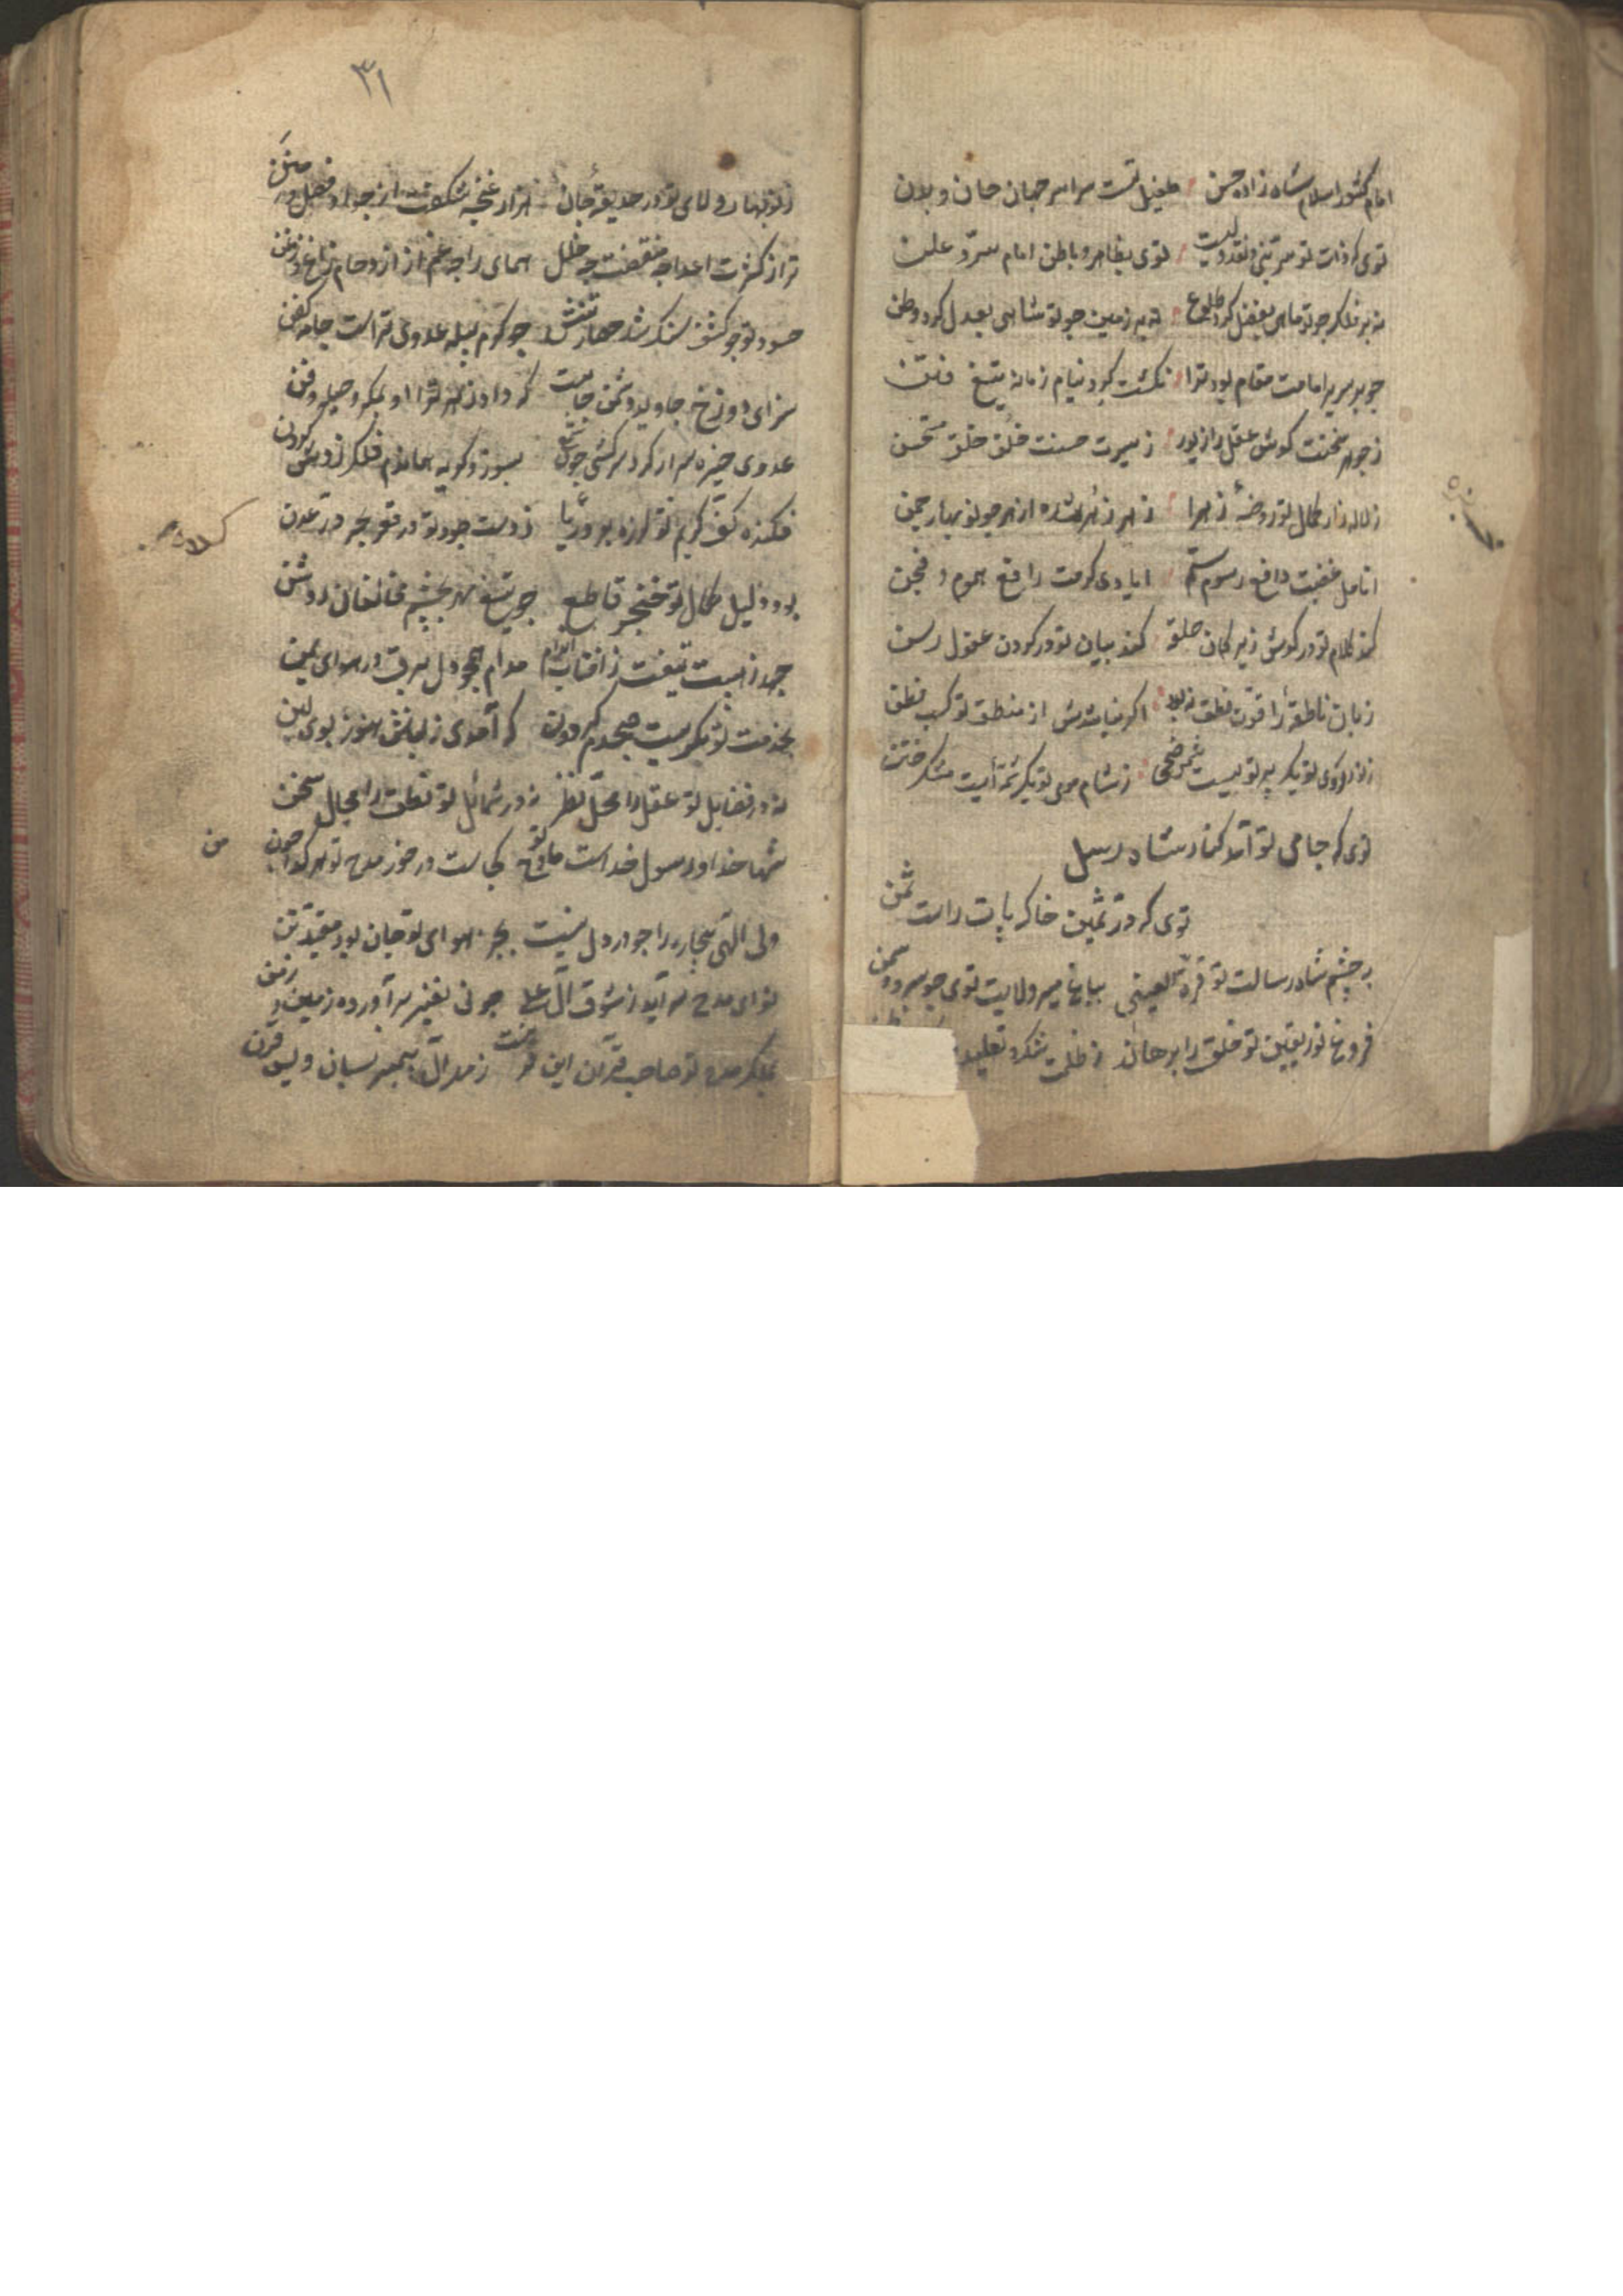 امام کشور اسلام شاه زاده حسن طفیل تست سراسر جهان جان و بدن
توی که ذات تو نبی و نقد ولیست توی بظاهر و باطن امام سرّ و علن
نه بر فلک چو تو ماهی بفضل کرد طلوع نه بر زمین چو تو شاهی بعدل کرد وطن
چو بر سریر امامت مقام بود ترا نکشت کرد نیام زمانه تیغ فتن
ز جوهر سخنت کوش عقل را زیور ز سیرت حسنت خُلق خلق مستحسن
ز لاله زار کمال تو روضهٔ زهرا ز هر چو نو بهار چمن
انامل غضبت دافع رسوم ستم ایادی کرمت رافع هموم و محن
کند کلام تو در کوش زیرکان حلقه کمند بیان تو در کردن عقول رسن
زبان ناطقه را قوت نطق نبود اکر نباشدش از منطق تو کسب فطن
ز نور روی تو یک پرتویست شمس ضحی ز شام موی تو یک شمّه ایست مشک ختن
توی که جای تو آمد کنار شاه رسل
توی که درّ ثمین خاک پات راست ثمن
به چشم شاه رسالت تو قرة العینی بباغ میر ولایت توی چو سرو و سمن
فروغ نور یقین تو خلق را برهاند ز ظلمت شک و تقلید
۳۱
ز نوبهار ولای تو در حدیقهٔ جان هزار غنچه شکفت از جود و فضل و منن
ترا ز کثرت اعدا چه منقصت چه خلل همای را چه غم از ازدحام زاغ و زغن
حسود تو چو کشف سنک شد حصار تنش چو کرم پیله عدوی تراست جامه کفن
سزای دوزخ جاوید دشمن جانت که داد زهر ترا او بمکر و حیله و فن
عدوی خیره سر ار کرد سرکشی چون شمع بسوز و کریه بماند فلکش زدش کردن
فکنده کفّ کریم تو لرزه بر دریا ز دست جود تو در قعر بحر درّ عدن
بود دلیل کمال تو خنجر قاطع چو تیغ مهر بچشم مخالفان روشن
جهد ز هیبت تیغت ز آفتاب مدام همچو دل برق در هوای یمن
بخدمت تو بکریست صبحدم کردون که آمدی ز لبانش هنوز بوی لبن
نه در فضایل تو عقل را محلّ نظر نه در شمائل تو نطق را مجال سخن
شها خدا و رسول خداست مادح تو کجاست در خور مدح تو هر کدا چون من
ولی الهی بیچاره را چو در دل نیست بجز هوای تو جان بود مقید تن
نوای مدح سراید ز شوق آل علی چو نی نفیر برآورده زمین و زمن
بملک مدح تو صاحب قران این قرنست ز مهر آل پیمبر بسان ویس قرن
من